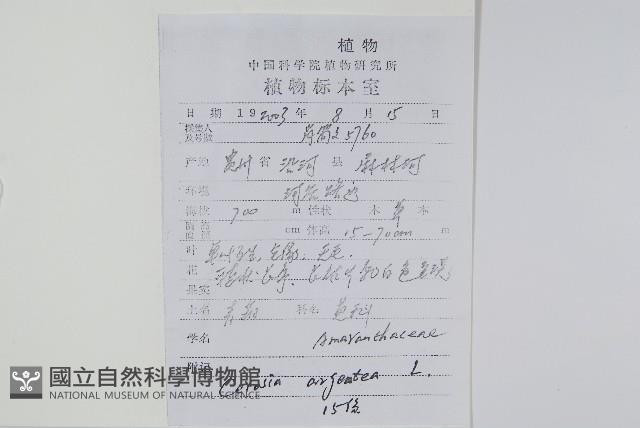 植物
中国科学院植物研究所
植物标本室
日期 19 2003 年 8 月 15 日
采集人
及号数 5760
产地 贵州 省 沿河 县 麻林河
环境 河岸路边
海拔 700 m 性状 木 草 本
胸高
直径 cm 体高 15-70cm m
叶 单叶互生, 全缘, 无毛.
花
果实
土名 青葙 科名 苋科
学名 Amaranthaceae
附记
Celosia argentea L.
15份
國立自然科學博物館
NATIONAL MUSEUM OF NATURAL SCIENCE